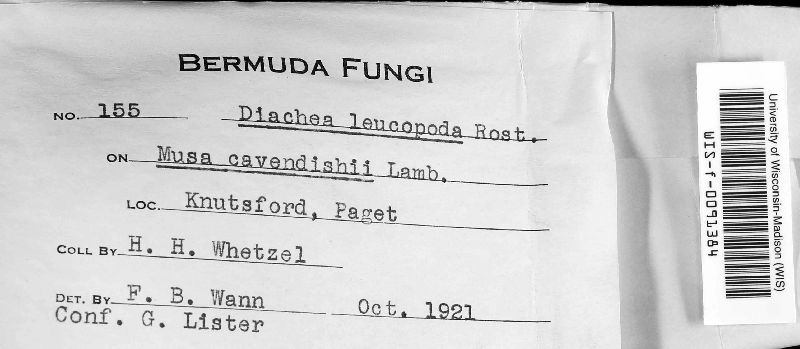 BERMUDA FUNGI
NO. 155 Diachea leucopoda Rost.
ON Musa cavendishii Lamb.
LOC. Knutsford, Paget
COLL BY H. H. Whetzel
DET. BY F. B. Wann Oct. 1921
Conf. G. Lister
University of Wisconsin-Madison (WIS)
WIS-f-0091384